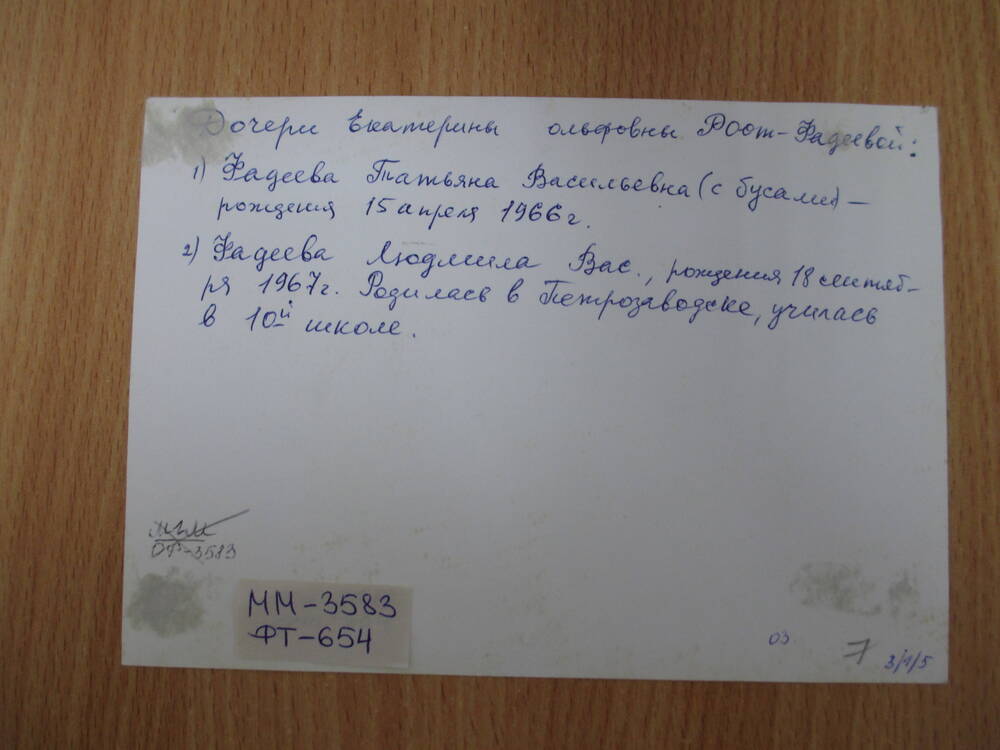 Дочери Екатерины ольфовны Роот-Фадеевой:
1) Фадеева Татьяна Васильевна (с бусами) —
рождения 15 апреля 1966 г.
2) Фадеева Людмила Вас., рождения 18 сентяб-
ря 1967 г. Родилась в Петрозаводске, училась
в 10й школе.
ОФ-3583
ММ-3583
ФТ-654
03
7
3/1/5